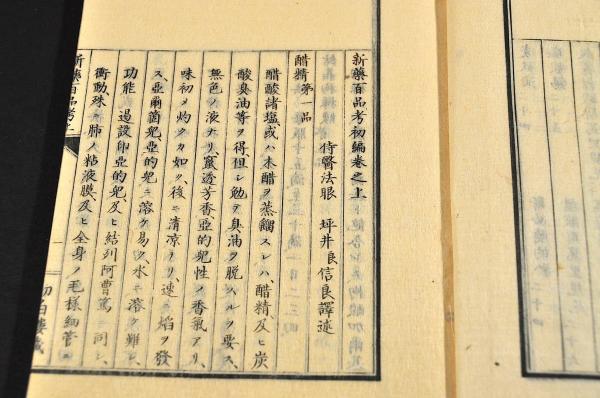 新藥百品考初編卷之上
侍醫法眼 坪井良信譯述
醋精 第一品
醋酸諸塩或ハ木醋ヲ蒸餾スレハ、醋精及ヒ炭
酸臭油等ヲ得但シ勉テ臭油ヲ脱スルヲ要ス、
無色ノ液ナリ、竄透芳香亞的兒性ノ香氣アリ、
味初メ灼クカ如ク、後ニ清凉ナリ、速ニ焰ヲ發
ス、亞爾箇兒、亞的兒ニ溶ケ易ク水ニ溶ケ難シ、
功能 過設印亞的兒、及ヒ結列阿曹篤ニ同シ、
衝動殊ニ肺ノ粘液膜及ヒ全身ノ毛樣細管ニ
新藥百品考上